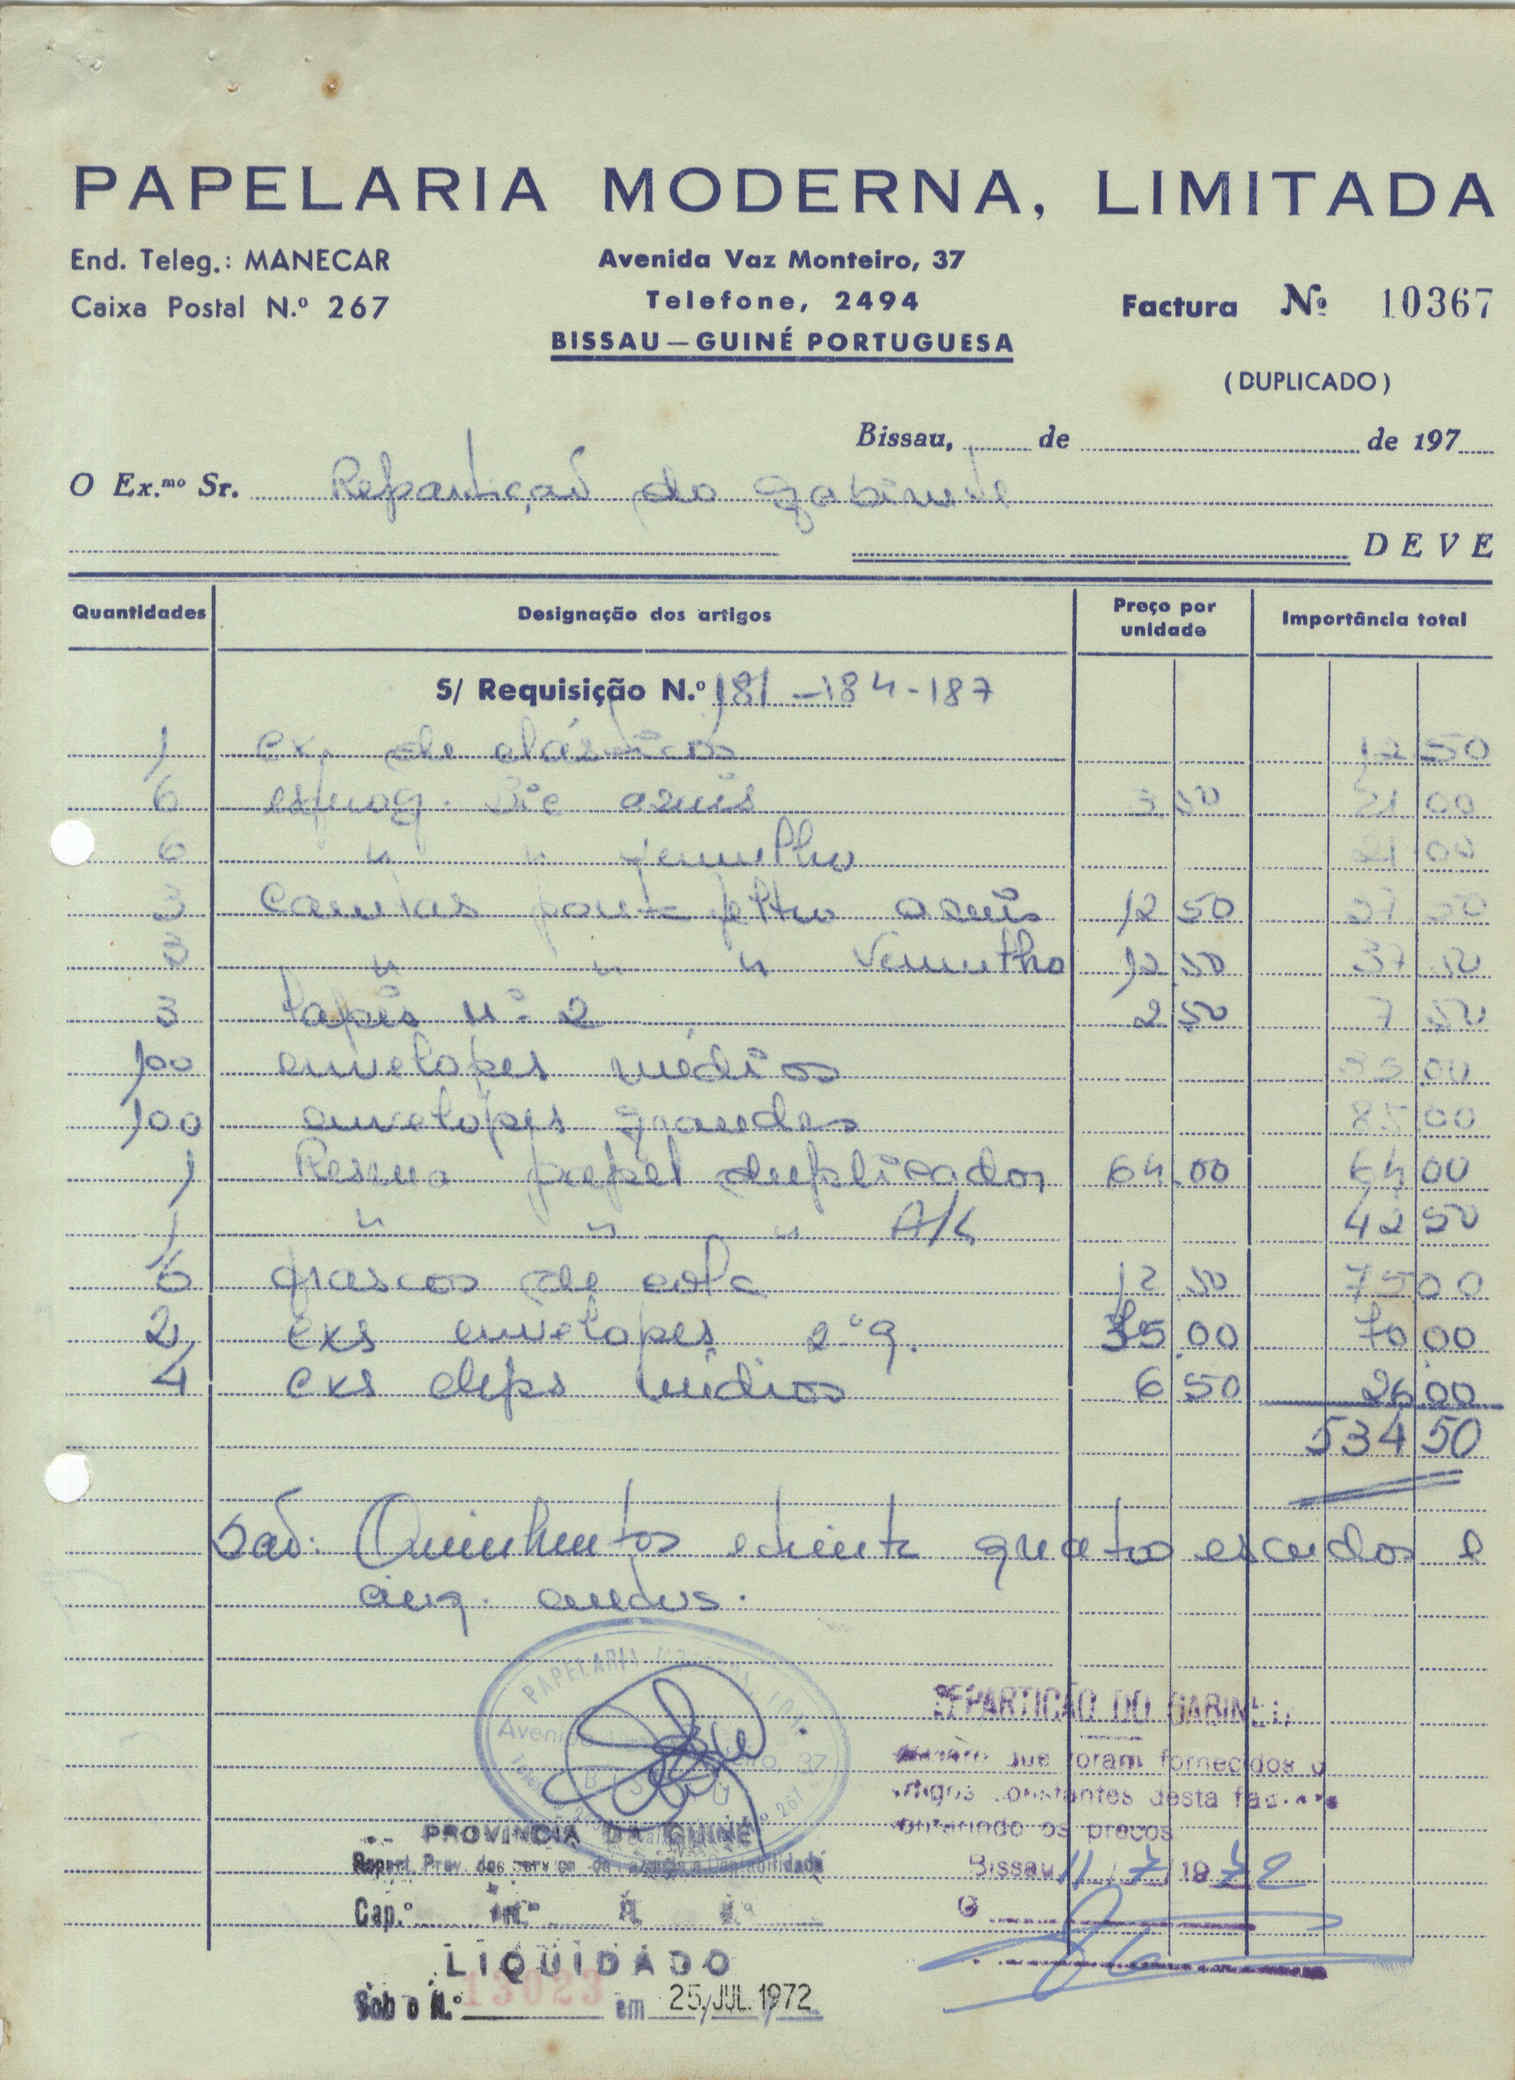 PAPELARIA MODERNA, LIMITADA
End. Teleg.: MANECAR
Caixa Postal N.º 267
Avenida Vaz Monteiro, 37
Telefone, 2494
BISSAU — GUINÉ PORTUGUESA
Factura Nº 10367
(DUPLICADO)
Bissau, de de 197
O Ex.mo Sr. Repartição do Gabinete
DEVE
Quantidades Designação dos artigos Preço por unidade Importância total
S/ Requisição N.º 181-184-187
1 cx. de elásticos 12 50
6 esferog. Bic azuis 3 50 21 00
6 " " vermelho 21 00
3 canetas ponta feltro azuis 12 50 37 50
3 " " " Vermelho 12 50 37 50
3 lapis nº 2 2 50 7 50
100 envelopes médios 35 00
100 envelopes grandes 85 00
1 Resma papel duplicador 64 00 64 00
1 " " " A/4 42 50
6 frascos de cola 12 50 75 00
2 cxs envelopes 2ª q. 35 00 70 00
4 cxs clips médios 6 50 26 00
534 50
São: Quinhentos e trinta quatro escudos e
cinq. centavos.
PAPELARIA MODERNA, LDA.
PROVINCIA DA GUINÉ
REPARTIÇÃO DO GABINETE
que foram fornecidos o
artigos constantes desta factura
conferindo os preços
Bissau 11/7/1972
O
Cap.º
LIQUIDADO
Sob o N.º 13023 em 25 JUL. 1972